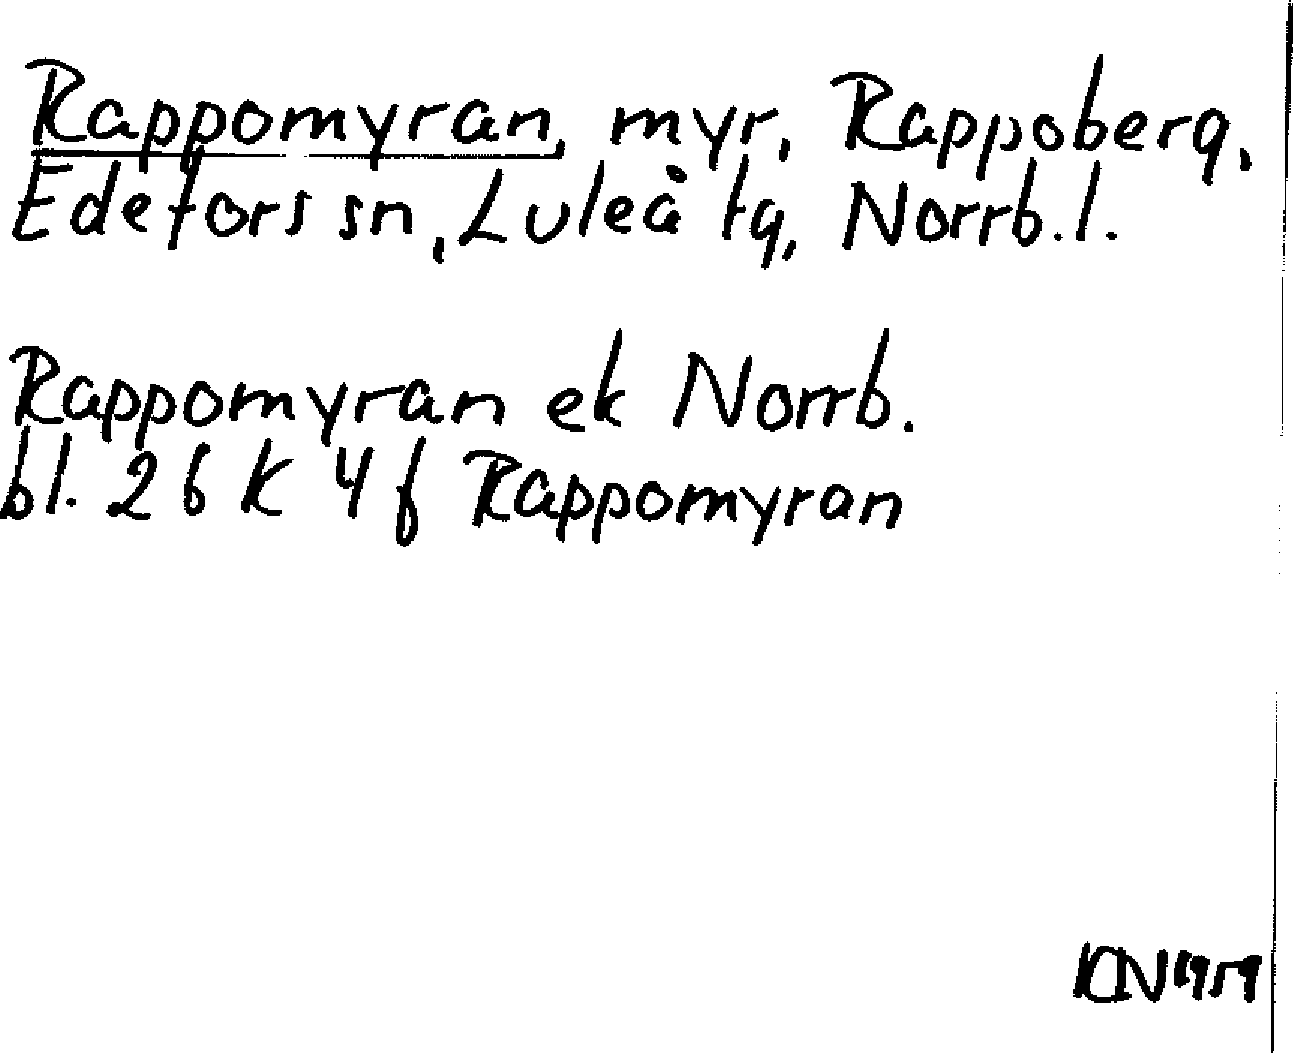 Rappomyran, myr, Rappoberg,
Edefors sn, Luleå tg, Norrb.l.
Rappomyran ek Norrb.
bl. 26 K 4 f Rappomyran